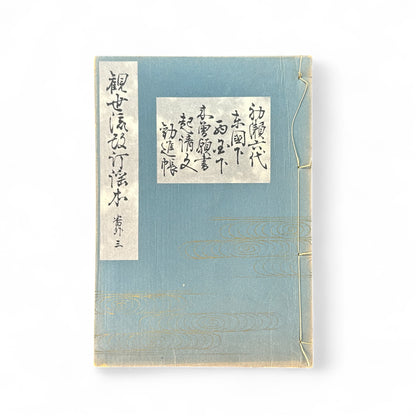 初瀬六代
東國下
西国下
木曽願書
起請文
勧進帳
観世流改訂謡本
番外 三